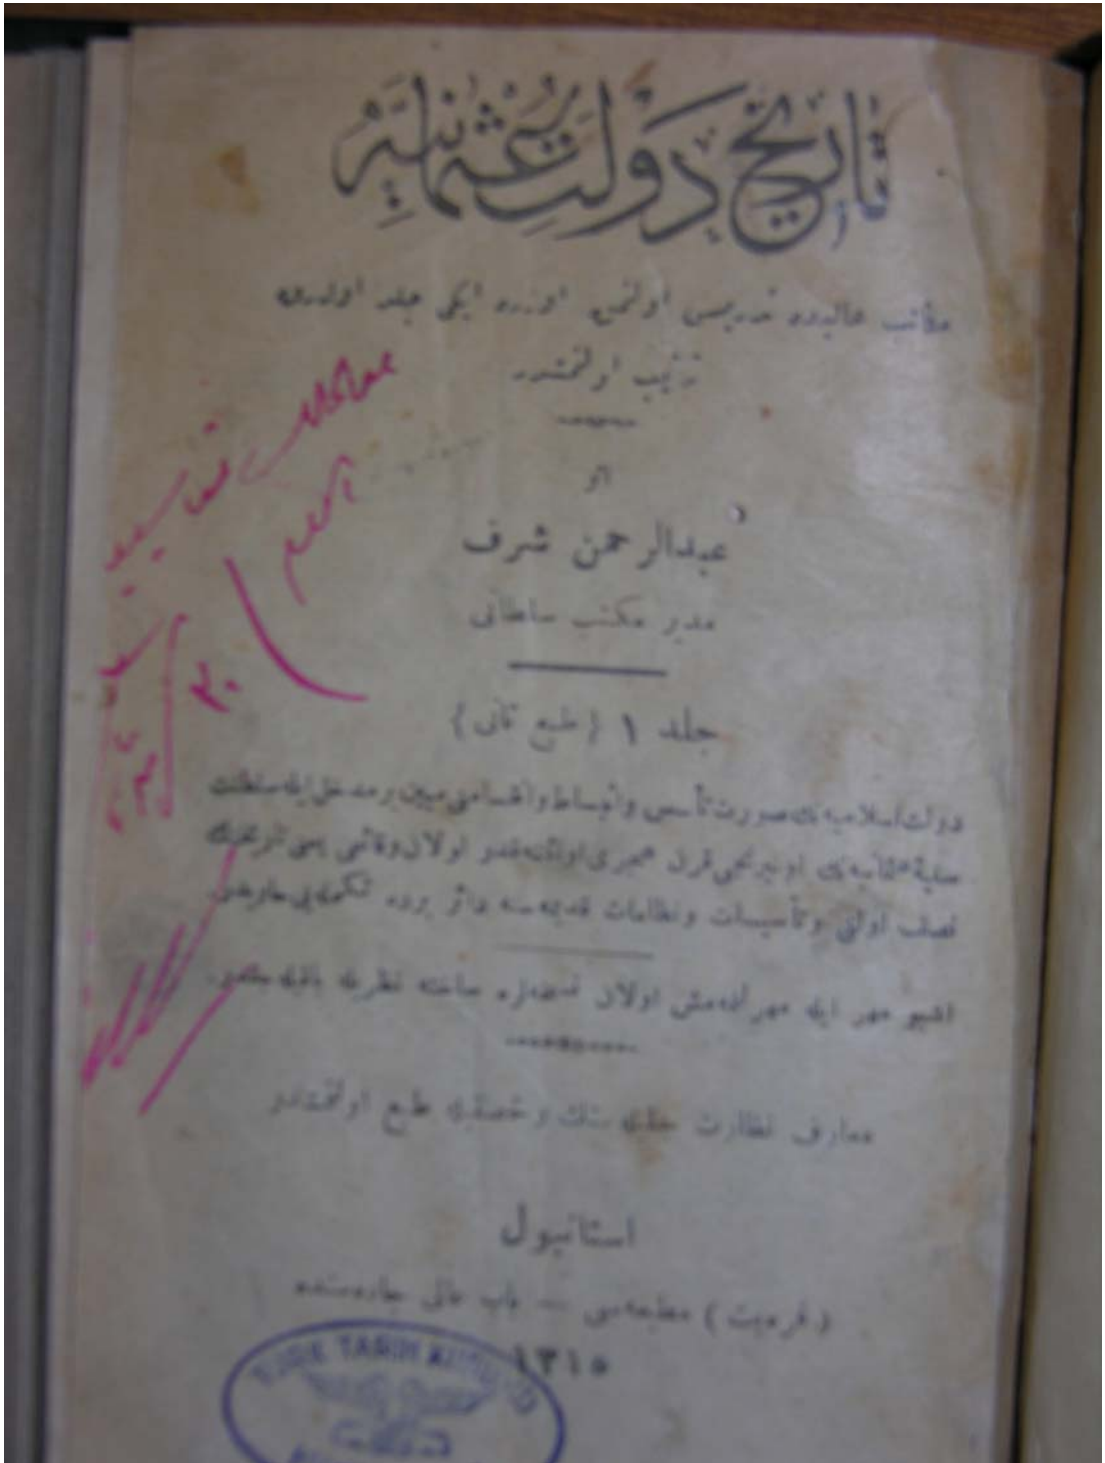 تاريخ دولت عثمانيه
مكاتب عاليه‌ده تدريس اولنمق اوزره ايكى جلد اوله‌رق
ترتيب اولنمشدر
اثر
عبدالرحمن شرف
مدير مكتب سلطانى
جلد ١ (طبع ثانى)
دولت اسلاميه‌نك صورت تأسس وانبساط وانقسامنى مبين بر مدخل ايله سلطنت
سنيۀ عثمانيه‌نك اون برنجى قرن هجرى اوائلنه قدر اولان وقائعى يعنى تاريخك
نصف اولنى وتأسيسات ونظامات قديمه‌سنه دائر برده تكمله‌يى حاويدر
اشبو مهر ايله مهرلنمه‌مش اولان نسخه‌لره ساخته نظريله باقيله‌جقدر
معارف نظارت جليله‌سنك رخصتيله طبع اولنمشدر
استانبول
مطبعه‌سى — باب عالى جاده‌سنده
١٣١٥
TARIH